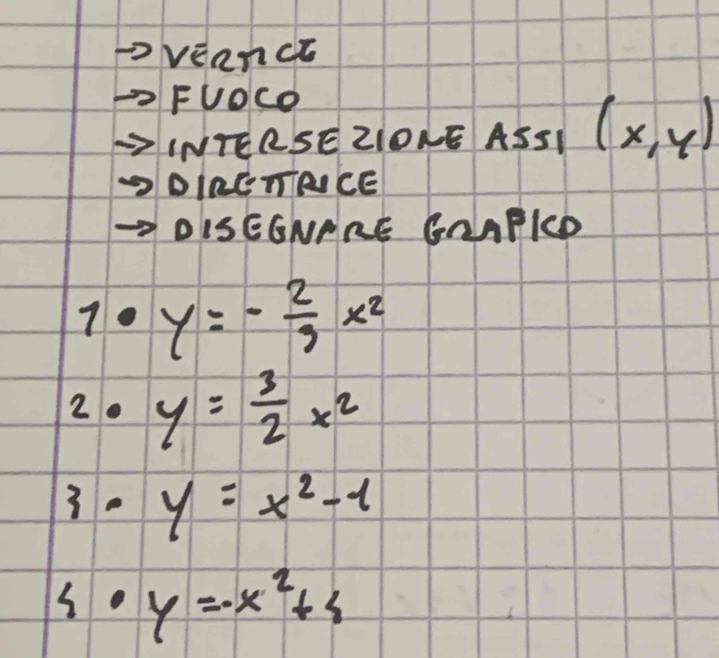 → VERTICE
→ FUOCO
→ INTERSEZIONE ASSI (x,y)
→ DIRETTRICE
→ DISEGNARE GRAFICO
1 • y = - 2/3 x²
2 • y = 3/2 x²
3 • y = x² - 1
4 • y = -x² + 4